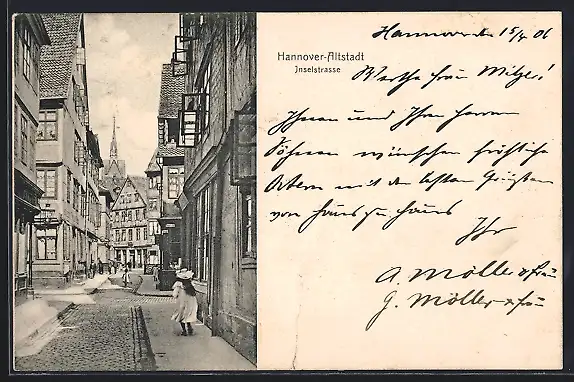 Hannover den 15/4 06
Hannover-Altstadt
Inselstrasse
Werthe Frau Mitzer!
Ihnen und Ihren Herren
Söhnen wünschen fröhliche
Ostern mit den besten Grüßen
von Haus zu Haus
Ihr
A. Möller & Frau
G. Möller & Frau